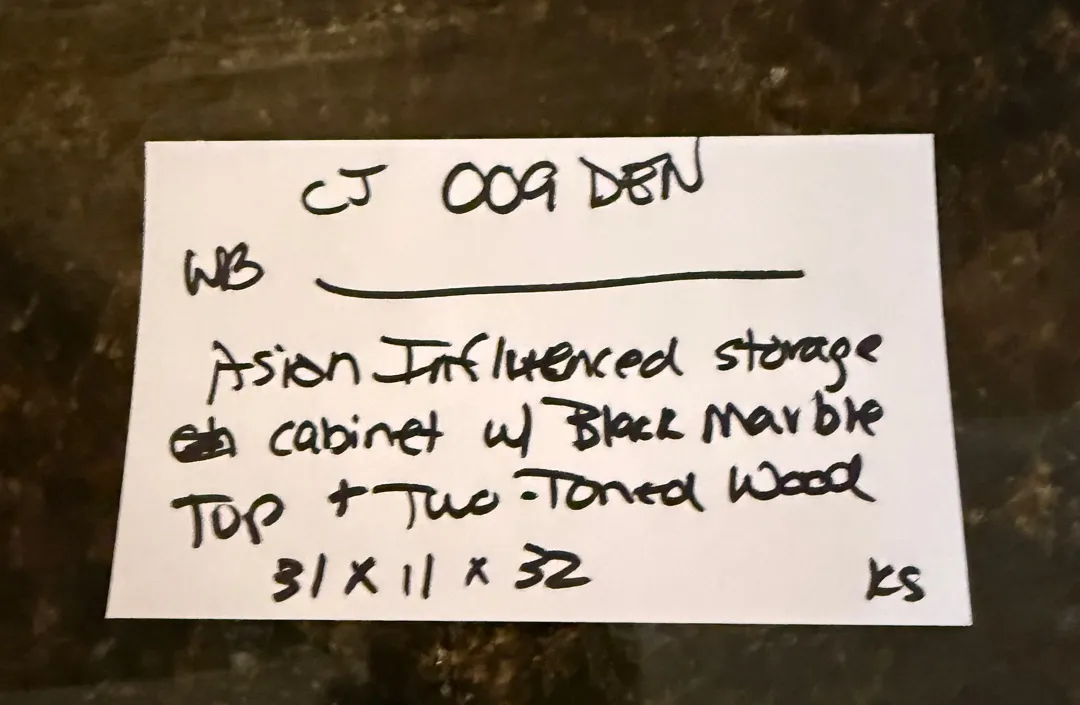 CJ 009 DEN
WB
Asian Influenced storage
cabinet w/ Black Marble
Top + Two-Toned Wood
31 x 11 x 32
KS